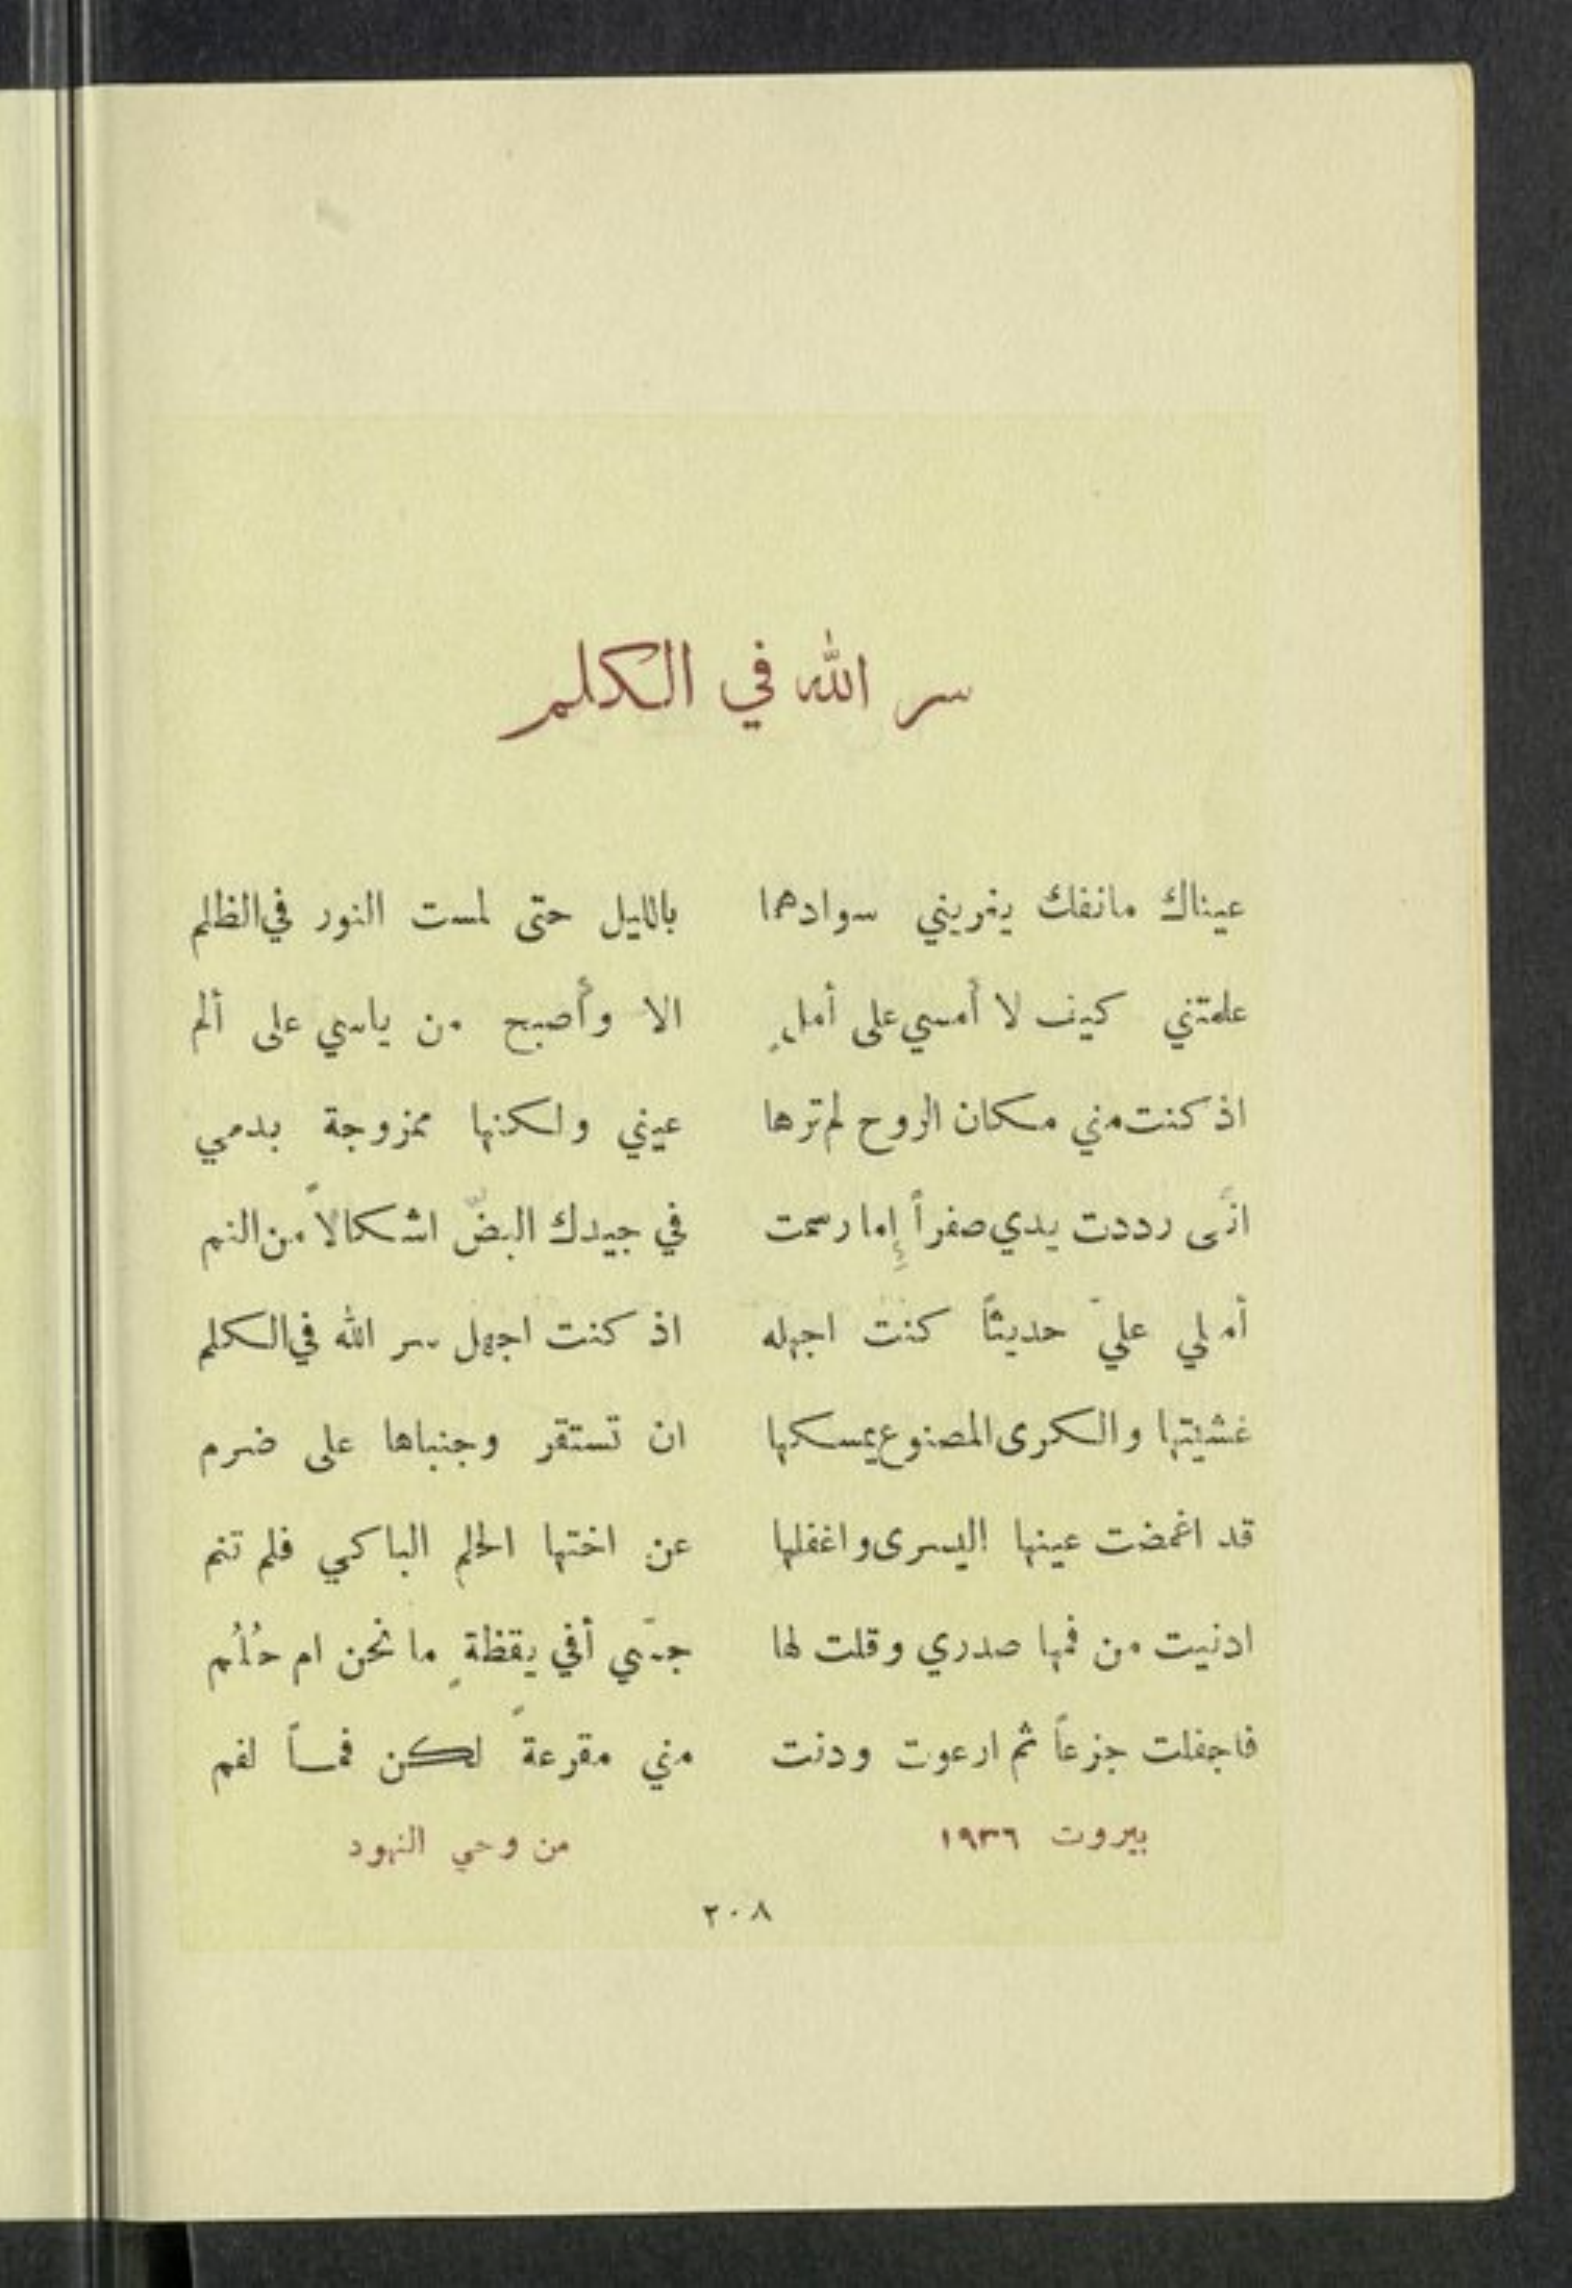 سر الله في الكلم
عيناك مانفك يغريني سوادهما بالليل حتى لمست النور في الظلم
علمتني كيف لا أمسي على أملٍ الا وأصبح من ياسي على ألم
اذ كنت مني مكان الروح لم ترها عيني ولكنها ممزوجة بدمي
انَّى رددت يدي صفراً إما رسمت في جيدك البضّ اشكالاً من النم
أملي عليّ حديثاً كنت اجهله اذ كنت اجهل سر الله في الكلم
غشيتها والكرى المصنوع يمسكها ان تستقر وجنباها على ضرم
قد اغمضت عينها اليسرى واغفلها عن اختها الحلم الباكي فلم تنم
ادنيت من فمها صدري وقلت لها جسّي أفي يقظةٍ ما نحن ام حُلُم
فاجفلت جزعاً ثم ارعوت ودنت مني مقرعةً لكن فمـاً لفم
بيروت ١٩٣٦ من وحي النهود
٢٠٨